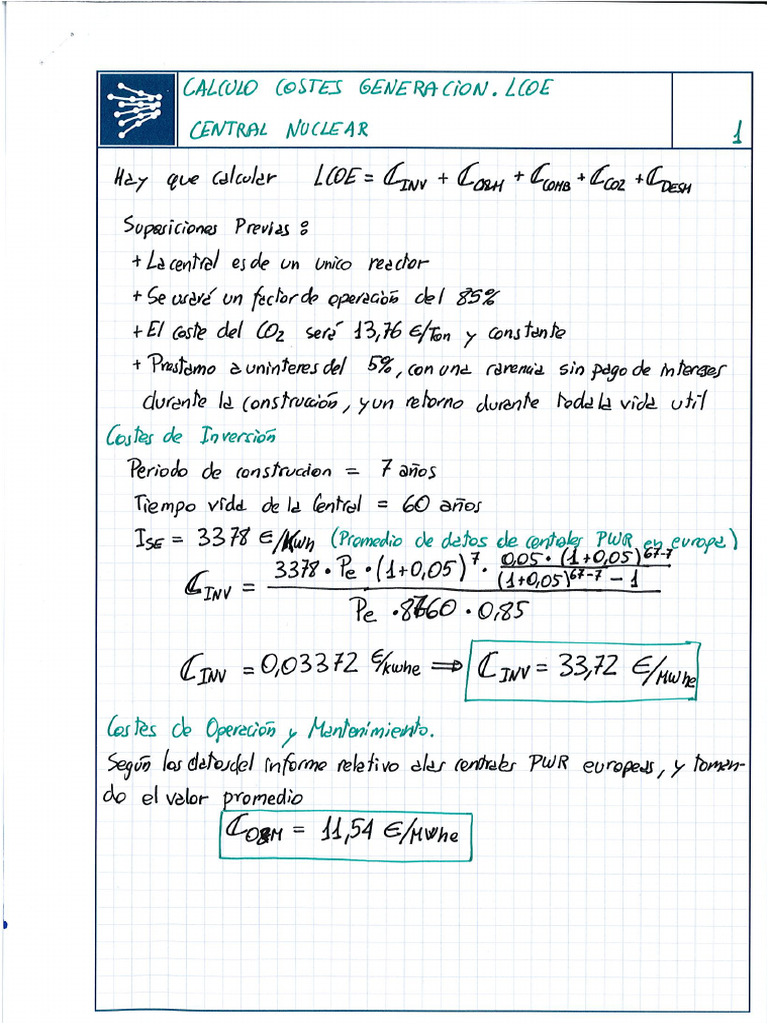 CALCULO COSTES GENERACION. LCOE
CENTRAL NUCLEAR
1
Hay que calcular LCOE = C_INV + C_O&M + C_COMB + C_CO2 + C_DESM
Suposiciones Previas:
+ La central es de un unico reactor
+ Se usará un factor de operación del 85%
+ El coste del CO2 será 13,76 €/Ton y constante
+ Prestamo a un interes del 5%, con una carencia sin pago de intereses
durante la construcción, y un retorno durante toda la vida util
Costes de Inversión
Periodo de construcion = 7 años
Tiempo vida de la Central = 60 años
I_SE = 3378 €/Kwh (Promedio de datos de centrales PWR en europa)
C_INV = (3378 · Pe · (1+0,05)^7 · (0,05 · (1+0,05)^(67-7)) / ((1+0,05)^(67-7) - 1)) / (Pe · 8760 · 0,85)
C_INV = 0,03372 €/kwhe ⇒ C_INV = 33,72 €/MWhe
Costes de Operación y Mantenimiento.
Según los datos del informe relativo a las centrales PWR europeas, y toman-
do el valor promedio
C_O&M = 11,54 €/MWhe